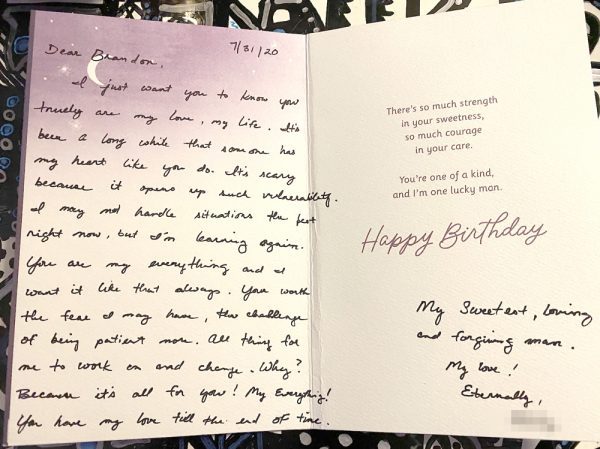 7/31/20
Dear Brandon,
I just want you to know you
truely are my love, my life. It's
been a long while that someone has
my heart like you do. It's scary
because it opens up such vulnerability.
I may not handle situations the best
right now, but I'm learning again.
You are my everything and I
want it like that always. Your worth
the fear I may have, the challenge
of being patient more. All thing for
me to work on and change. Why?
Because it's all for you! My Everything!
You have my love till the end of time.
There's so much strength
in your sweetness,
so much courage
in your care.
You're one of a kind,
and I'm one lucky man.
Happy Birthday
My Sweetest, loving
and forgiving man.
My love!
Eternally,